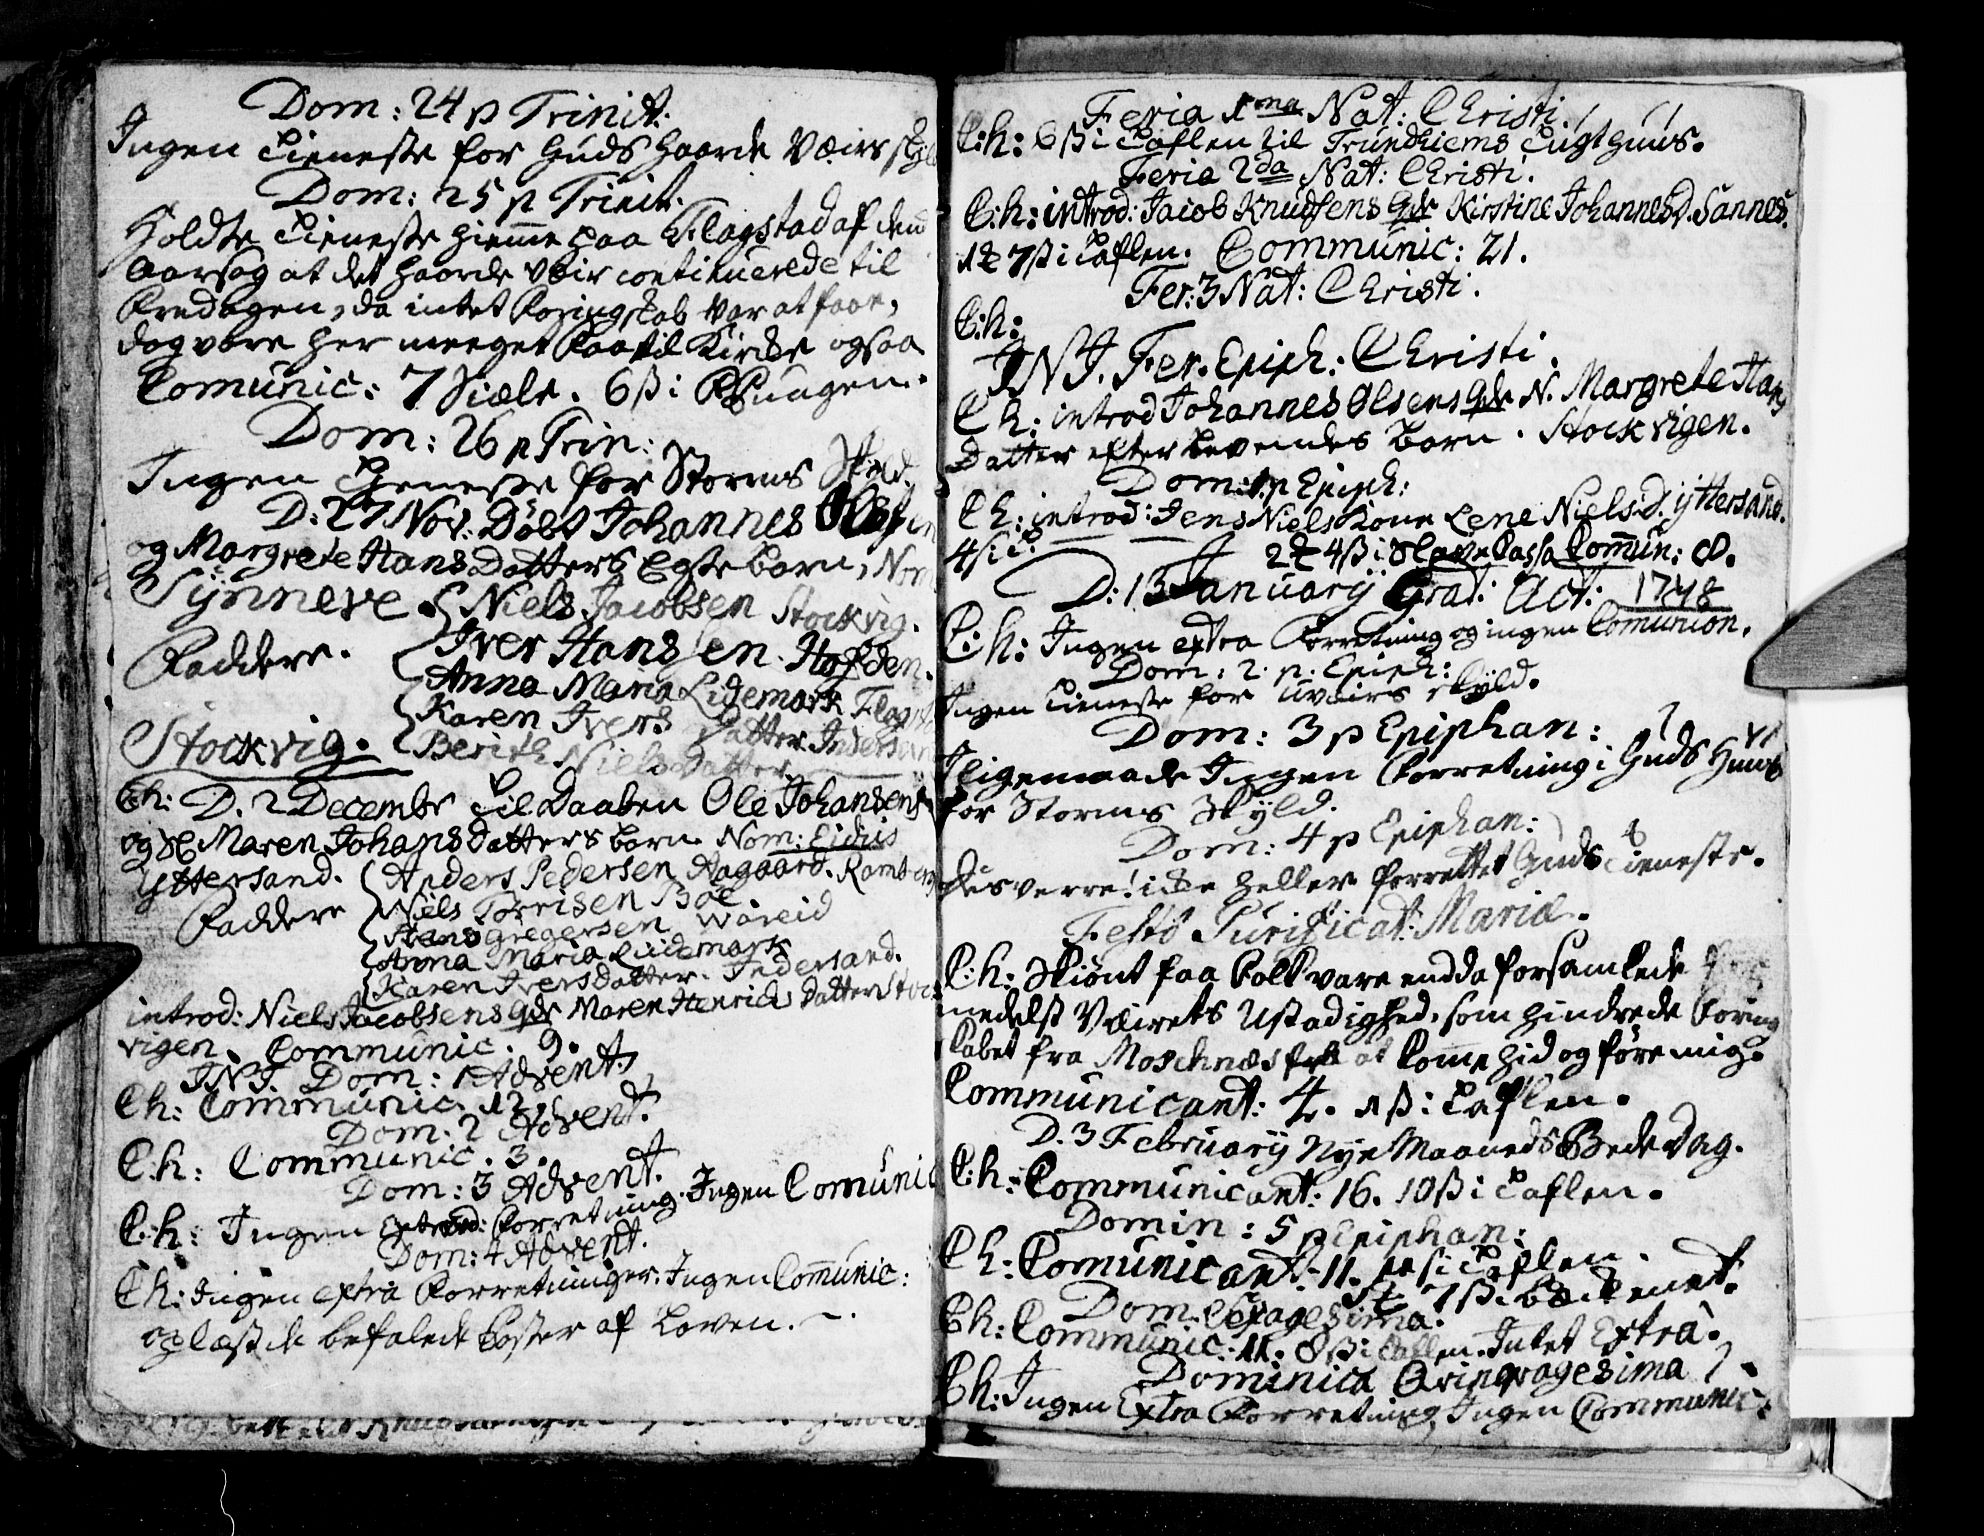 Dom: 24 p Trinit:
Ingen Tieneste for Guds haarde Væirs
Dom: 25 p Trinit.
Holdte Tieneste hiemme paa Flagstad af den
Aarsag at det haarde Væir continuerede til
Fredagen, da intet Føringskab var at faae,
dog vare her meeget Faa til Kircke ogsaa
Comunic: 7 Siæle. 6 ß i Pungen.
Dom: 26 p Trin:
Ingen Tieneste for Storms Skyld.
D: 27 Nov: Døbt Johannes Olsen
og Margrete Hans Datters Egte barn, Nom
Synneve. Niels Jacobsen Stockvig.
Faddere. Iver Hanssen. Hofden.
Anna Maria Lidemark Flagst
Karen Ivers Datter Indersan
Stockvig. Berith Nielsdatter
Ch: D. 2 Decembr Til Daaben Ole Johansens
og Maren Johansdatters barn. Nom: Eidiis
Yttersand. Anders Pedersen Aagaard. Ramberg
Niels Torrisen Böe
Faddere Hans Gregersen Wareid
Anna Maria Lüdemark
Karen Iversdatter. Indersand.
introd: Niels Jacobsens Qde Maren Henrichs Datter Stoc
vigen. Communic. 9.
INJ. Dom: 1 Advent.
Ch: Communic. 12.
Dom: 2 Advent.
C:h: Communic. 3.
Dom: 3 Advent.
C:h: Ingen Extraord: Forretning. Ingen Comunic
Dom: 4 Advent.
Ch: Ingen extra Forretninger. Ingen Comunic:
oplæst de befalede Poster af Loven.
Feria 1ma Nat: Christi.
C:h: 6 ß i Taflen til Trundhiems Tugthuus.
Feria 2da Nat: Christi.
C:h: introd: Jacob Knudsens Qde Kirstine Johannesd. Sannes.
7 ß i Taflen. Communic: 21.
Fer: 3 Nat: Christi.
C:h:
INJ. Fer. Epiph: Christi.
Ch: introd Johannes Olsens Qde N. Margrete Hans
Datter efter levendes barn. Stockvigen.
Dom: 1 p Epiph:
Ch: introd: Jens Niels Kone Lene Nielsd. yttersand.
4 ß i Slave Cassa Comun: 8.
D: 13 January Grat: Act: 1748
C:h: Ingen extra Forretning og ingen Comunion.
Dom: 2. p. Epiph:
Ingen Tieneste for uvairs skyld.
Dom: 3 p Epiphan:
Iligemaade Ingen Forretning i Guds Huus
for Storms Skyld.
Dom: 4 p Epiphan:
Desverre! icke heller forrettet Guds Tieneste.
Festo Purificat: Mariæ.
C:h: Skiønt faa Folk vare endda forsamlede
medelst Væirets Ustadighed, som hindrede Føring
skabet fra Moschnæs at komme hid og føre mig.
Communicant: 4. 1 ß i Taflen.
D. 3 February Nye Maaneds Bededag.
C:h: Communicant: 16. 10 ß i Taflen.
Domin: 5 p Epiphan:
Ch: Comunicant: 11. ß i Taflen.
7 ß i Beckenet.
Dom: Sexagesima.
Ch: Communic: 11. 8 ß i Taflen. Intet Extra.
Dominica Qvinqvagesima
Ch: Ingen Extra Forretning, Ingen Communic